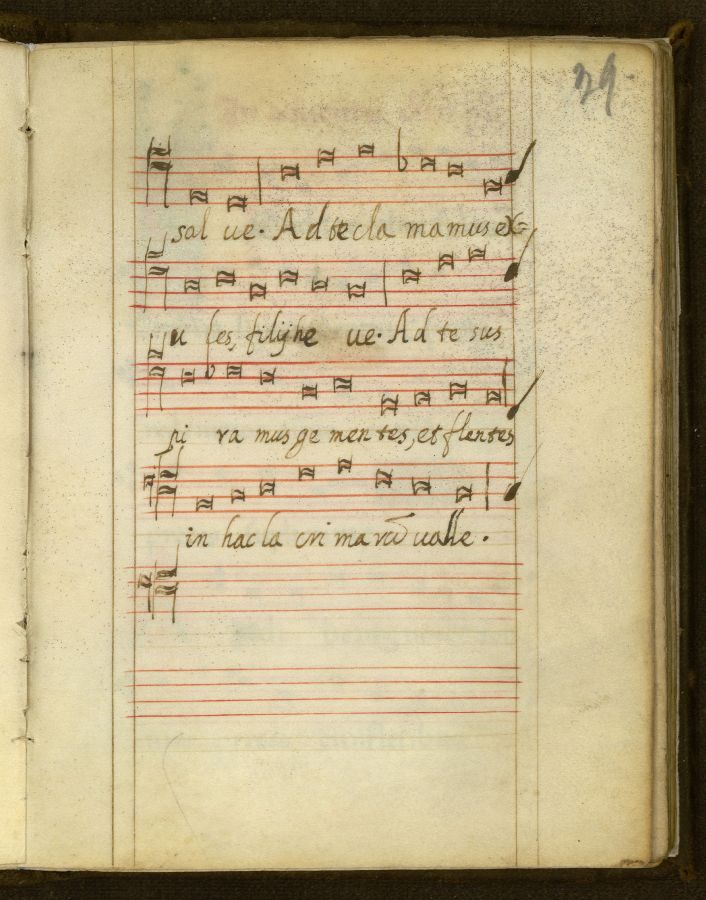 29
sal ue. Ad te cla mamus ex=
u les, filij he ue. Ad te sus
pi ra mus ge men tes, et flentes
in hac la cri ma rū ualle.